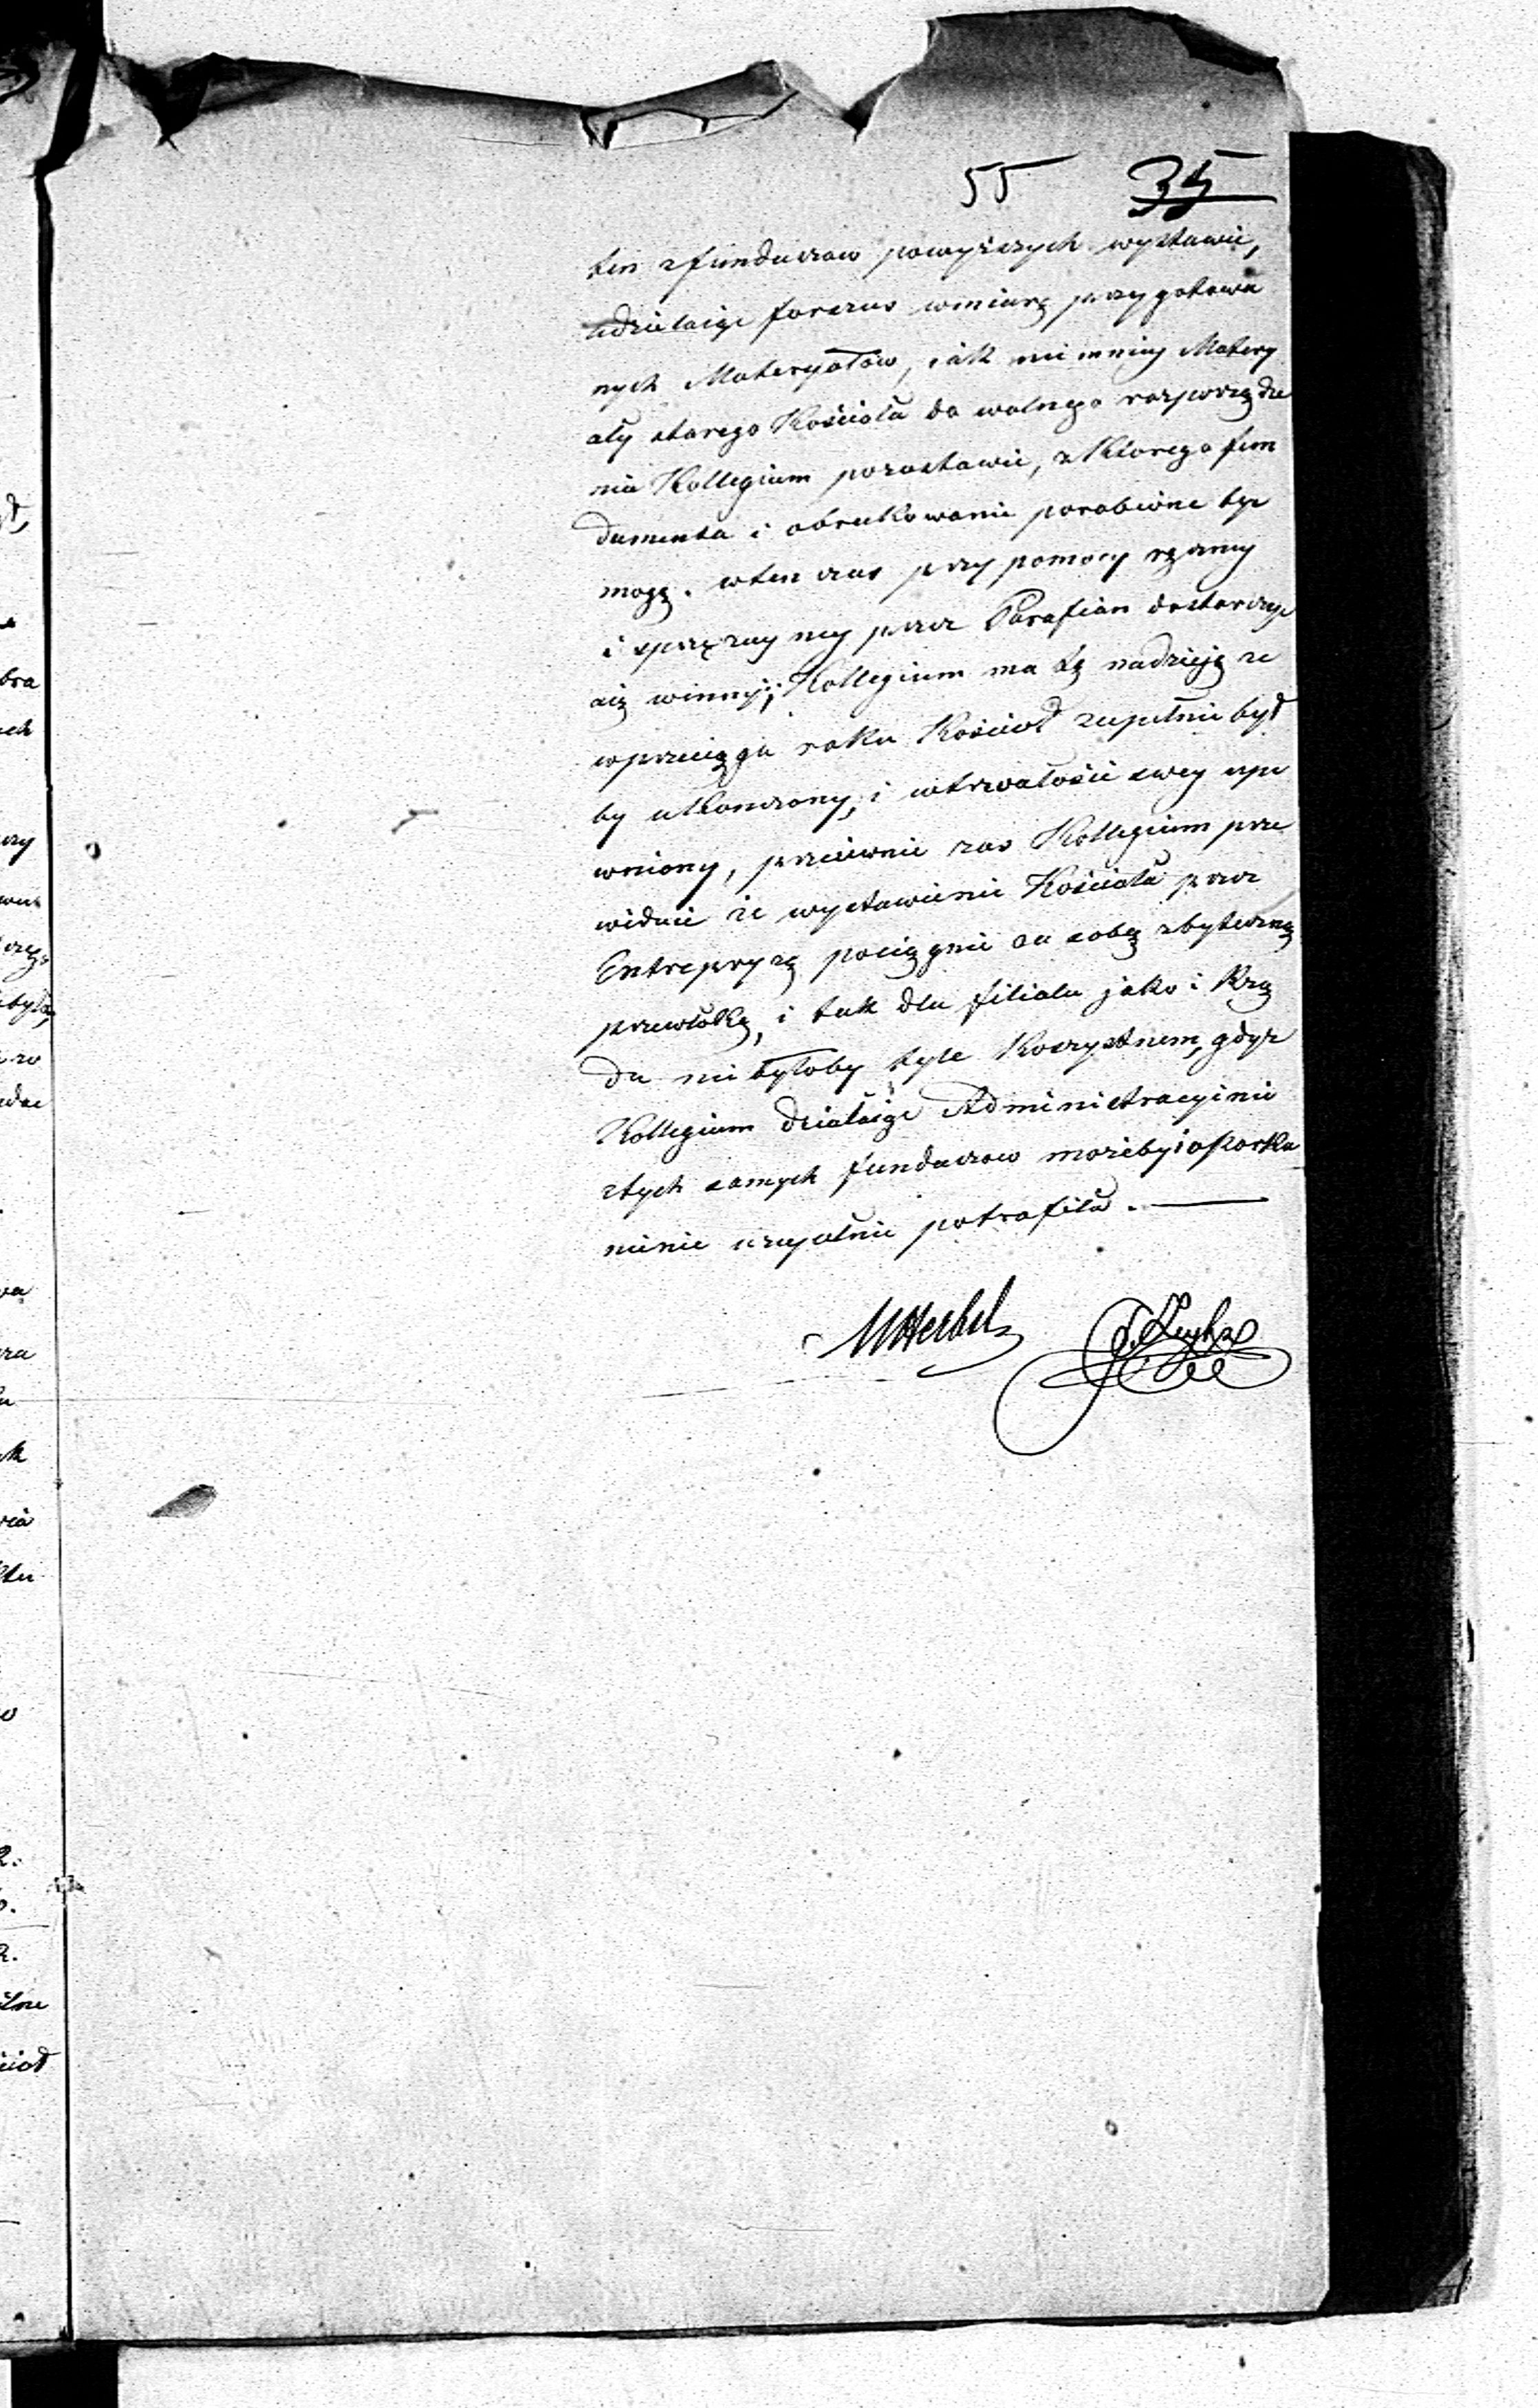 55 35
ten z funduszow powyższych wystawić,
udzielaiąc forszus w miarę przygotowa
nych Materyałów, iak nie mniey Matery
ały starego Kościoła do wolnego rozporządze
nia Kollegium pozostawić, z Którego fun
damenta i obrukowanie porobione być
mogą. wten czas przy pomocy ręczney
i sprzężayney przez Parafian dostarczyć
się winnyi; Kollegium ma tę nadzieję ze
wprzeciągu roku Kościoł zupełnie był
by ukończony, i wtrwałości swey upe
wniony, przeciwnie zas Kollegium prze
widuie że wystawienie Kościoła przez
Entrepryzę pociągnie za sobą zbyteczną
przewłokę, i tak dla filialu jako i Rzą
du nie byłoby tyle Korzystnem, gdyż
Kollegium działaiąc Administracyinie
ztych samych funduszow możeby i oparka
nienie uzupełnić potrafiło.